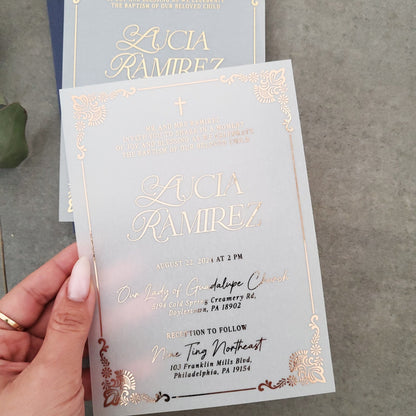 THE BAPTISM OF OUR BELOVED CHILD
LUCIA
RAMIREZ
LUCIA
RAMIREZ
AUGUST 22, 2024 AT 2 PM
Our Lady of Guadalupe Church
5194 Cold Spring Creamery Rd,
Doylestown, PA 18902
RECEPTION TO FOLLOW
Nine Ting Northeast
103 Franklin Mills Blvd,
Philadelphia, PA 19154